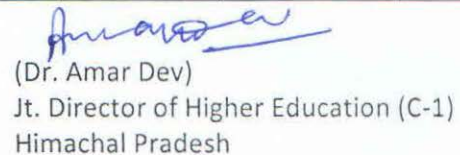 (Dr. Amar Dev)
Jt. Director of Higher Education (C-1)
Himachal Pradesh